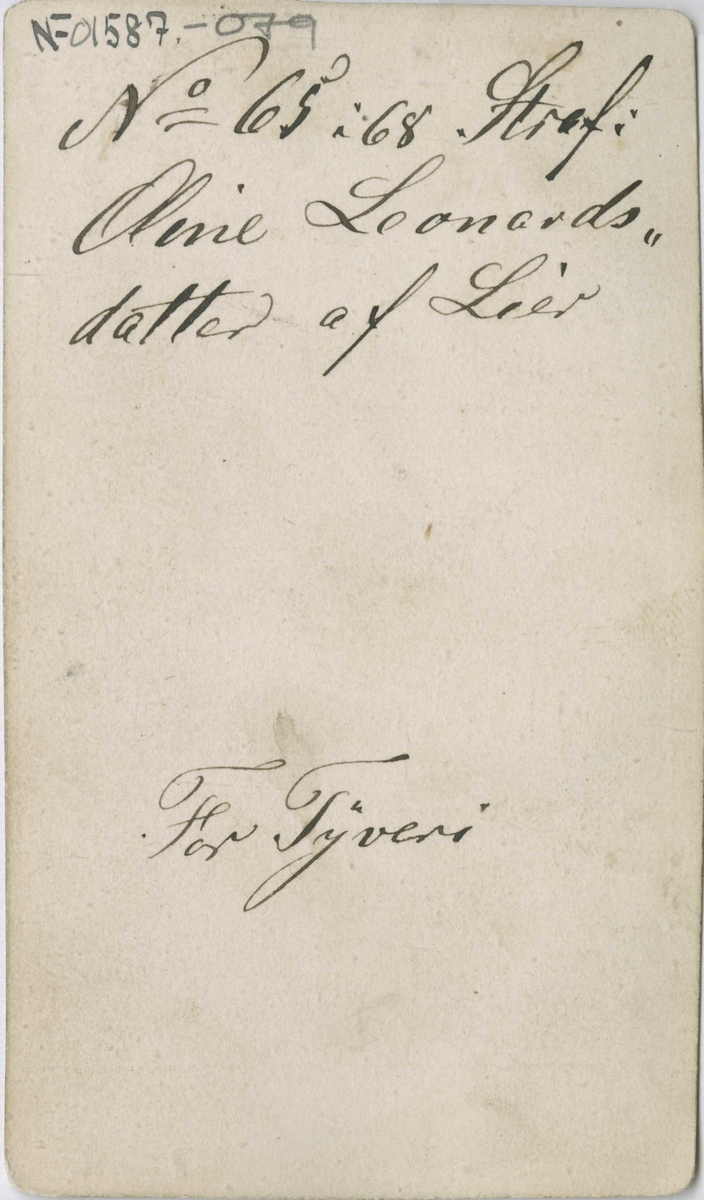 NF-01587.-079
No 65 i 68. Straf:
Oline Leonards„
datter af Lier
For Tÿveri